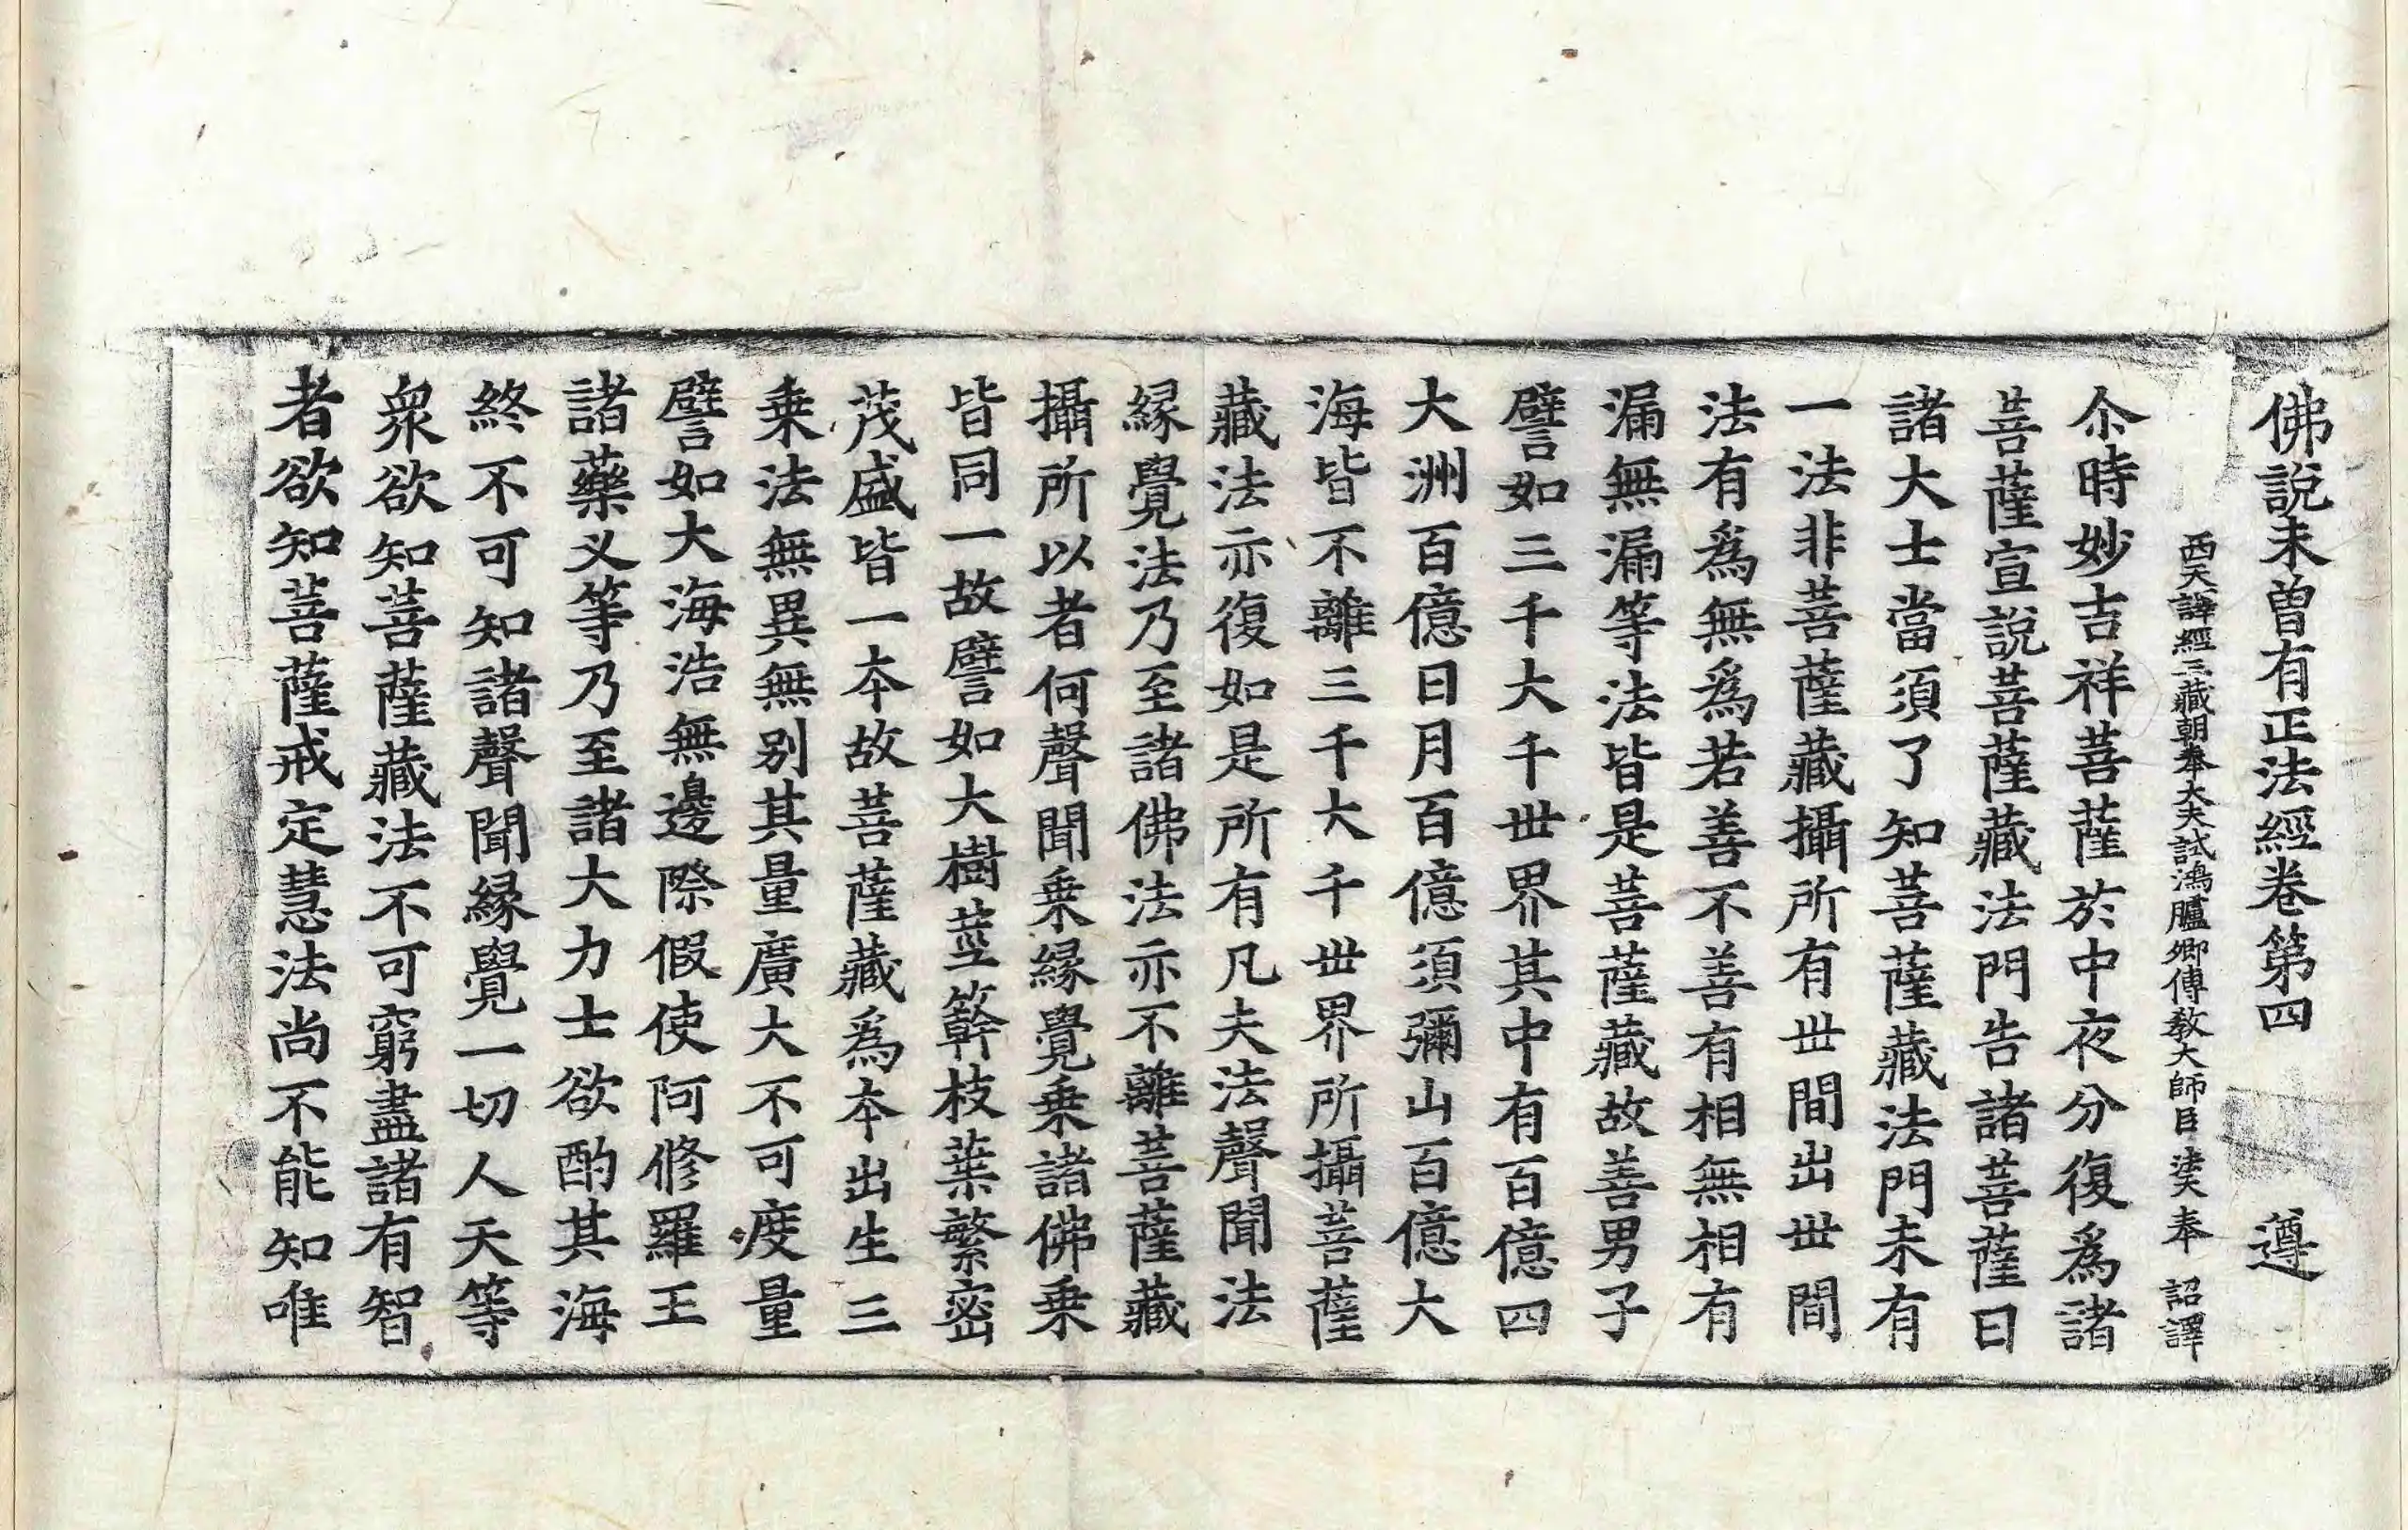 佛說未曽有正法經卷第四　遵
西天譯經三藏朝奉大夫試鴻臚卿傳敎大師臣法天奉　詔譯
尒時妙吉祥菩薩於中夜分復爲諸
菩薩宣說菩薩藏法門告諸菩薩曰
諸大士當須了知菩薩藏法門未有
一法非菩薩藏攝所有丗間出丗間
法有爲無爲若善不善有相無相有
漏無漏等法皆是菩薩藏故善男子
譬如三千大千丗界其中有百億四
大洲百億日月百億須彌山百億大
海皆不離三千大千丗界所攝菩薩
藏法亦復如是所有凡夫法聲聞法
緣覺法乃至諸佛法亦不離菩薩藏
攝所以者何聲聞乗緣覺乗諸佛乗
皆同一故譬如大樹莖簳枝葉繁密
茂盛皆一夲故菩薩藏爲夲出生三
乗法無異無别其量廣大不可度量
譬如大海浩無邊際假使阿修羅王
諸藥叉等乃至諸大力士欲酌其海
終不可知諸聲聞緣覺一切人天等
衆欲知菩薩藏法不可窮盡諸有智
者欲知菩薩戒定慧法尚不能知唯